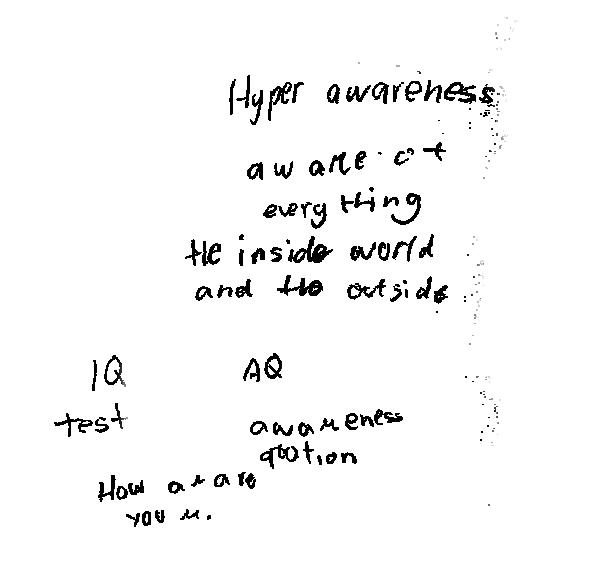 Hyper awareness
aware of
everything
the inside world
and the outside
IQ AQ
test awareness
quotion
How aware
you r.